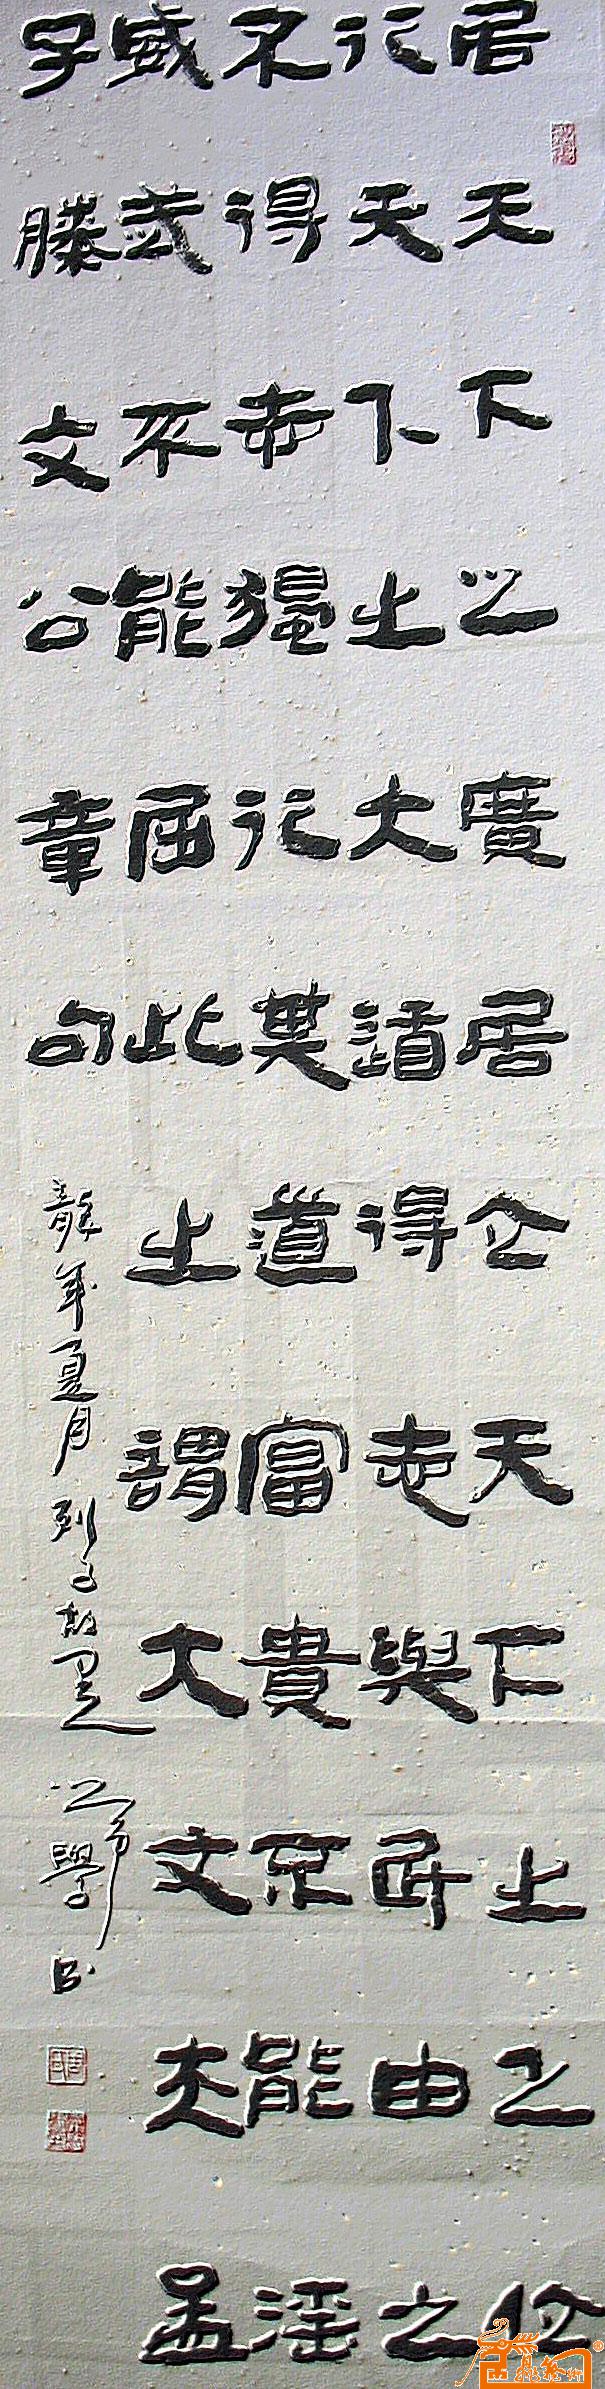 居天下之廣居立天下之正位
行天下之大道得志與民由之
不得志獨行其道富貴不能淫
威武不能屈此之謂大丈夫孟
子滕文公章句
龍年夏月列子故里 學書